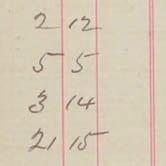 2 12
5 5
3 14
21 15